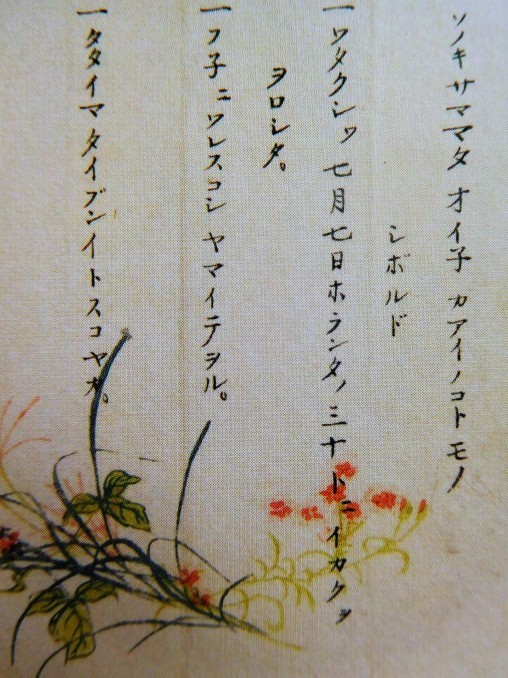 ソノキサママタ オイ子 カアイノコトモノ
シボルド
一ワタクシワ 七月七日ホランタノ 三ナトニ イカクヲ
ヲロシタ。
一フ子ニワレスコシ ヤマイテヲル。
一タタイマタイブンイトスコヤカ。